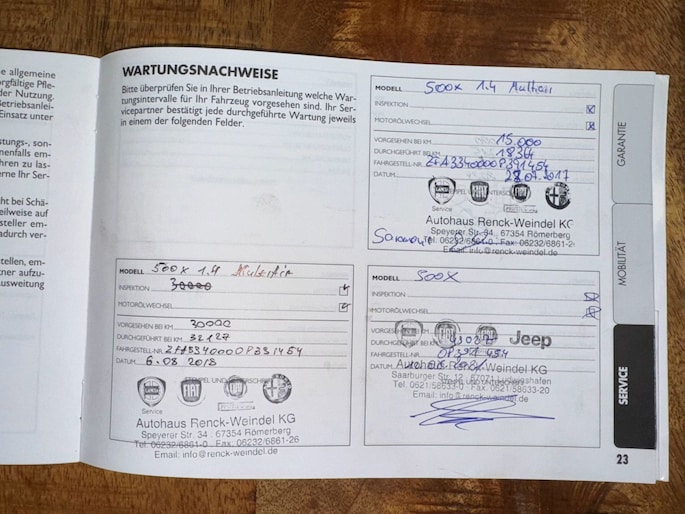 e allgemeine
orgfältige Pfle-
der Nutzung.
Betriebsanlei-
Einsatz unter
stungs-, son-
nenfalls em-
hren zu las-
erne Ihr Ser-
ht bei Schä-
eilweise auf
steller em-
adurch ver-
stellen, em-
tner aufzu-
usweitung
WARTUNGSNACHWEISE
Bitte überprüfen Sie in Ihrer Betriebsanleitung welche War-
tungsintervalle für Ihr Fahrzeug vorgesehen sind. Ihr Ser-
vicepartner bestätigt jede durchgeführte Wartung jeweils
in einem der folgenden Felder.
MODELL 500X 1.4 Multiair
INSPEKTION
MOTORÖLWECHSEL
VORGESEHEN BEI KM 15.000
DURCHGEFÜHRT BEI KM 18364
FAHRGESTELL-NR. ZFA3340000P391454
DATUM 28.07.2017
Service
Autohaus Renck-Weindel KG
Speyerer Str. 34, 67354 Römerberg
Tel. 06232/6861-0 Fax: 06232/6861-2
Email: info@renck-weindel.de
MODELL 500X 1.4 Multiair
INSPEKTION 30000
MOTORÖLWECHSEL
VORGESEHEN BEI KM 30000
DURCHGEFÜHRT BEI KM 32127
FAHRGESTELL-NR. ZFA3340000P391454
DATUM 6.08 2018
STEMPEL UND UNTERSCHRIFT
Service
Autohaus Renck-Weindel KG
Speyerer Str. 34, 67354 Römerberg
Tel. 06232/6861-0 Fax: 06232/6861-26
Email: info@renck-weindel.de
MODELL 500X
INSPEKTION
MOTORÖLWECHSEL
VORGESEHEN BEI KM
Jeep
DURCHGEFÜHRT BEI KM
FAHRGESTELL-NR. 0P391454
DATUM
Autohaus Renck-Weindel KG
Saarburger Str. 12, Ludwigshafen
Tel. 0621/58633-0 Fax: 0621-58633-20
Email: info@renck-weindel.de
GARANTIE
MOBILITÄT
SERVICE
23